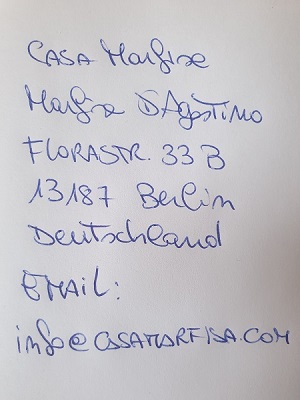 CASA Marfisa
Marfisa D'Agostino
FLORASTR. 33 B
13187 Berlin
Deutschland
EMAIL:
info@CASAMARFISA.COM